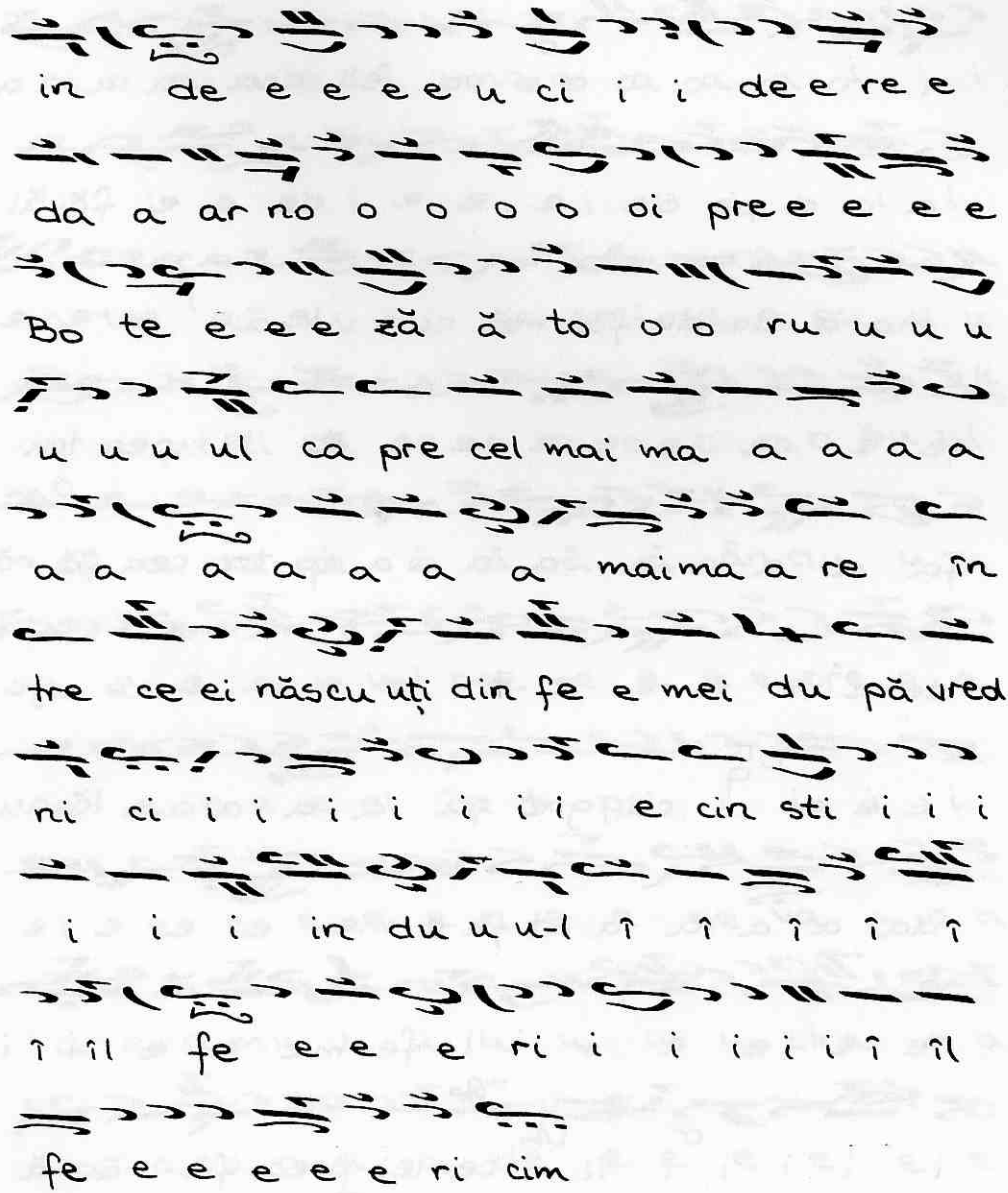 in de e e e e u ci i i de e re e
da a ar no o o o o oi pre e e e e
Bo te e e e ză ă to o o ru u u u
u u u ul ca pre cel mai ma a a a a
a a a a a a a mai ma a re în
tre ce ei născu uți din fe e mei du pă vred
ni ci i i i i i i i e cin sti i i i
i i i in du u u-l î î î î î
î îl fe e e e ri i i i i i î îl
fe e e e e e ri cim